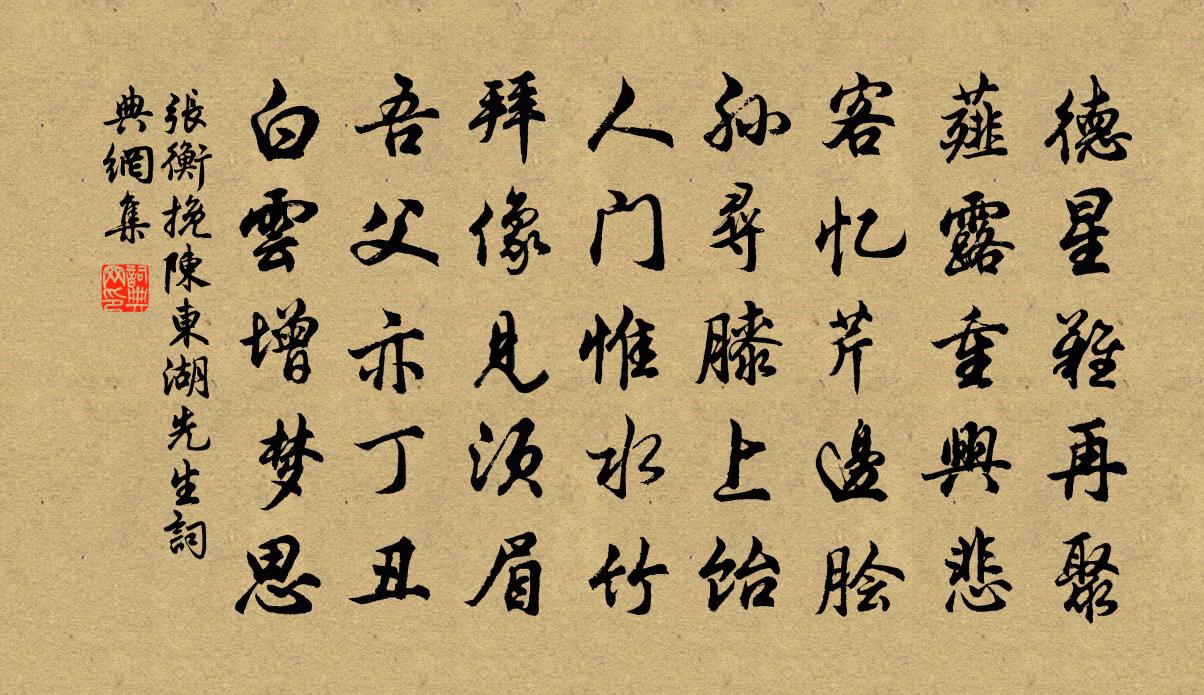 德星難再聚
薤露重興悲
客忆芹邊脍
孙尋膝上饴
人门惟水竹
拜像見须眉
吾父亦丁丑
白雲增梦思
張衡挽陳東湖先生詞
典網集
詞典网印